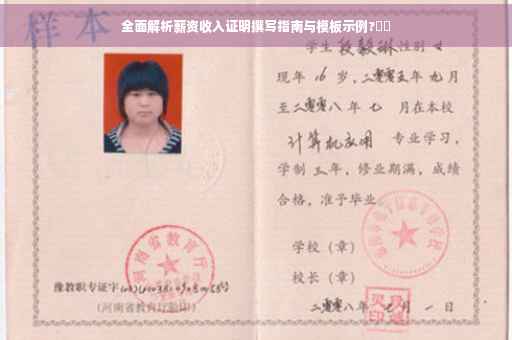 全面解析薪资收入证明撰写指南与模板示例?▯▯
样本
学生 段毅琳 性别 女
现年 16 岁,二零零五年 九月
至二零零八 年 七 月在本校
计算机应用 专业学习,
学制 三 年,修业期满,成绩
合格,准予毕业
学校(章)
校长(章)
二零零八年 七 月 一 日
河南省教育厅
豫教职专证字
(河南省教育厅验印)